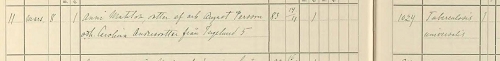 11 mars 8 1 Anni Matilda dotter af arb August Persson 83 19/11 1 1029 Tuberculosis
och Carolina Andersdotter från Pageland 5 universalis